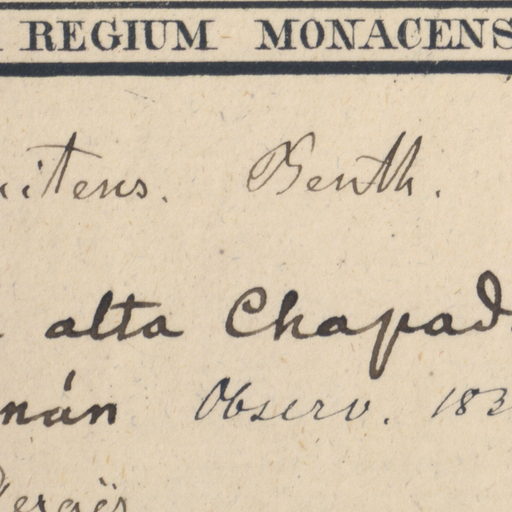 REGIUM MONACENS
nitens. Benth.
alta Chapad
nán Observ. 183